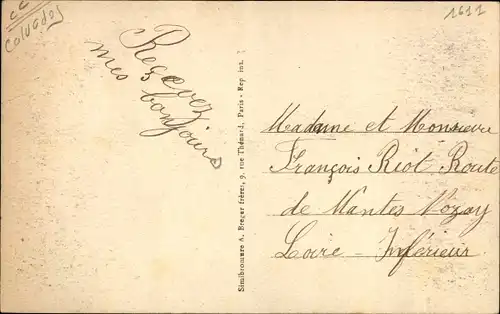 CC
Calvados
1611
Recevez
mes bonjours
Simibromure A. Breger frères, 9, rue Thénard, Paris - Rep. int.
Madame et Monsieur
François Riot Route
de Nantes Nozay
Loire - Inférieur